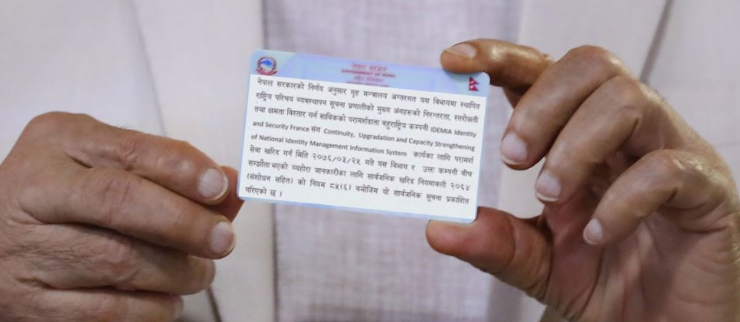 नेपाल सरकार
GOVERNMENT OF NEPAL
नेपाल सरकारको निर्णय अनुसार गृह मन्त्रालय अन्तरगत यस विभागमा स्थापित
राष्ट्रिय परिचय व्यवस्थापन सूचना प्रणालीको मुख्य अंगहरुको निरन्तरता, स्तरोन्नती
तथा क्षमता विस्तार गर्न साविकको परामर्शदाता बहुराष्ट्रिय कम्पनी IDEMIA Identity
and Security France संग Continuity, Upgradation and Capacity Strengthening
of National Identity Management Information System कार्यका लागि परामर्श
सेवा खरिद गर्न मिति २०७६/०३/२५ गते यस विभाग र उक्त कम्पनी बीच
सम्झौता भएको व्यहोरा जानकारीका लागि सार्वजनिक खरिद नियमावली २०६४
(संशोधन सहित) को नियम ८५(६) बमोजिम यो सार्वजनिक सूचना प्रकाशित
गरिएको छ ।